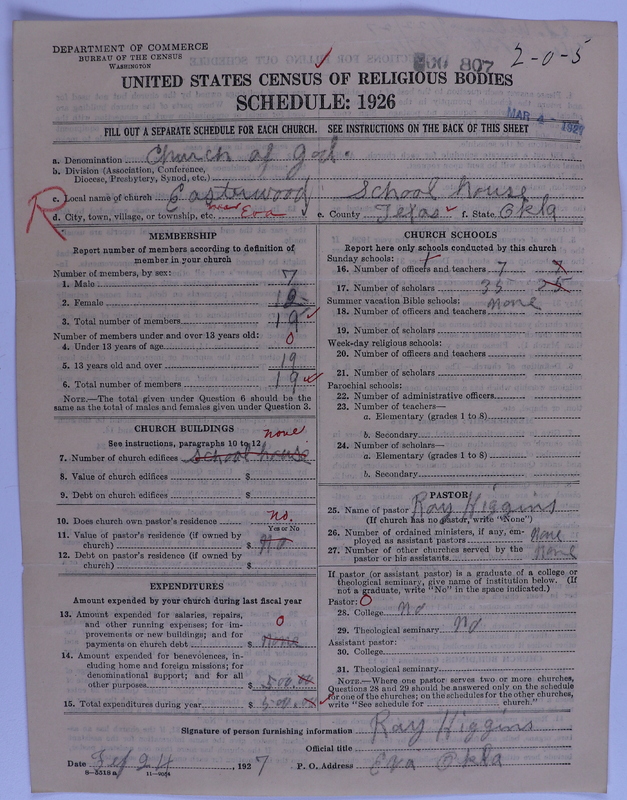 DEPARTMENT OF COMMERCE
BUREAU OF THE CENSUS
WASHINGTON
807
2-0-5
UNITED STATES CENSUS OF RELIGIOUS BODIES
SCHEDULE: 1926
MAR 4 - 1927
FILL OUT A SEPARATE SCHEDULE FOR EACH CHURCH. SEE INSTRUCTIONS ON THE BACK OF THIS SHEET
a. Denomination Church of God.
b. Division (Association, Conference,
Diocese, Presbytery, Synod, etc.)
R
c. Local name of church Easterwood School house
d. City, town, village, or township, etc. near Eva e. County Texas f. State Okla
MEMBERSHIP
Report number of members according to definition of
member in your church
Number of members, by sex:
1. Male 7
2. Female 12
3. Total number of members 19
Number of members under and over 13 years old:
4. Under 13 years of age 0
5. 13 years old and over 19
6. Total number of members 19
NOTE.—The total given under Question 6 should be
same as the total of males and females given under Question 3.
CHURCH BUILDINGS
See instructions, paragraphs 10 to 12
none
7. Number of church edifices school house
8. Value of church edifices $
9. Debt on church edifices $
10. Does church own pastor's residence no.
Yes or No
11. Value of pastor's residence (if owned by
church) $ No
12. Debt on pastor's residence (if owned by
church) $
EXPENDITURES
Amount expended by your church during last fiscal year
13. Amount expended for salaries, repairs,
and other running expenses; for im-
provements or new buildings; and for
payments on church debt $ None
0
14. Amount expended for benevolences, in-
cluding home and foreign missions; for
denominational support; and for all
other purposes $ 500.00
15. Total expenditures during year $ 500.00
CHURCH SCHOOLS
Report here only schools conducted by this church
Sunday schools:
16. Number of officers and teachers 7
17. Number of scholars 35 25
Summer vacation Bible schools:
18. Number of officers and teachers none
19. Number of scholars
Week-day religious schools:
20. Number of officers and teachers
21. Number of scholars
Parochial schools:
22. Number of administrative officers
23. Number of teachers—
a. Elementary (grades 1 to 8)
b. Secondary
24. Number of scholars—
a. Elementary (grades 1 to 8)
b. Secondary
PASTOR
25. Name of pastor Ray Higgins
(If church has no pastor, write "None")
26. Number of ordained ministers, if any, em-
ployed as assistant pastors None
27. Number of other churches served by the
pastor or his assistants None
If pastor (or assistant pastor) is a graduate of a college or
theological seminary, give name of institution below. (If
not a graduate, write "No" in the space indicated.)
Pastor: 0
28. College No
29. Theological seminary No
Assistant pastor:
30. College
31. Theological seminary
NOTE.—Where one pastor serves two or more churches,
Questions 28 and 29 should be answered only on the schedule
for one of the churches; on the schedules for the other churches,
write "See schedule for church."
Signature of person furnishing information Ray Higgins
Official title
Date 24, 1927 P. O. Address Eva Okla
8-5518a 11-9074